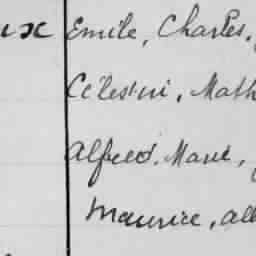 ux Emile, Charles,
Célestin, Math
Alfred, Marie,
Maurice, alb